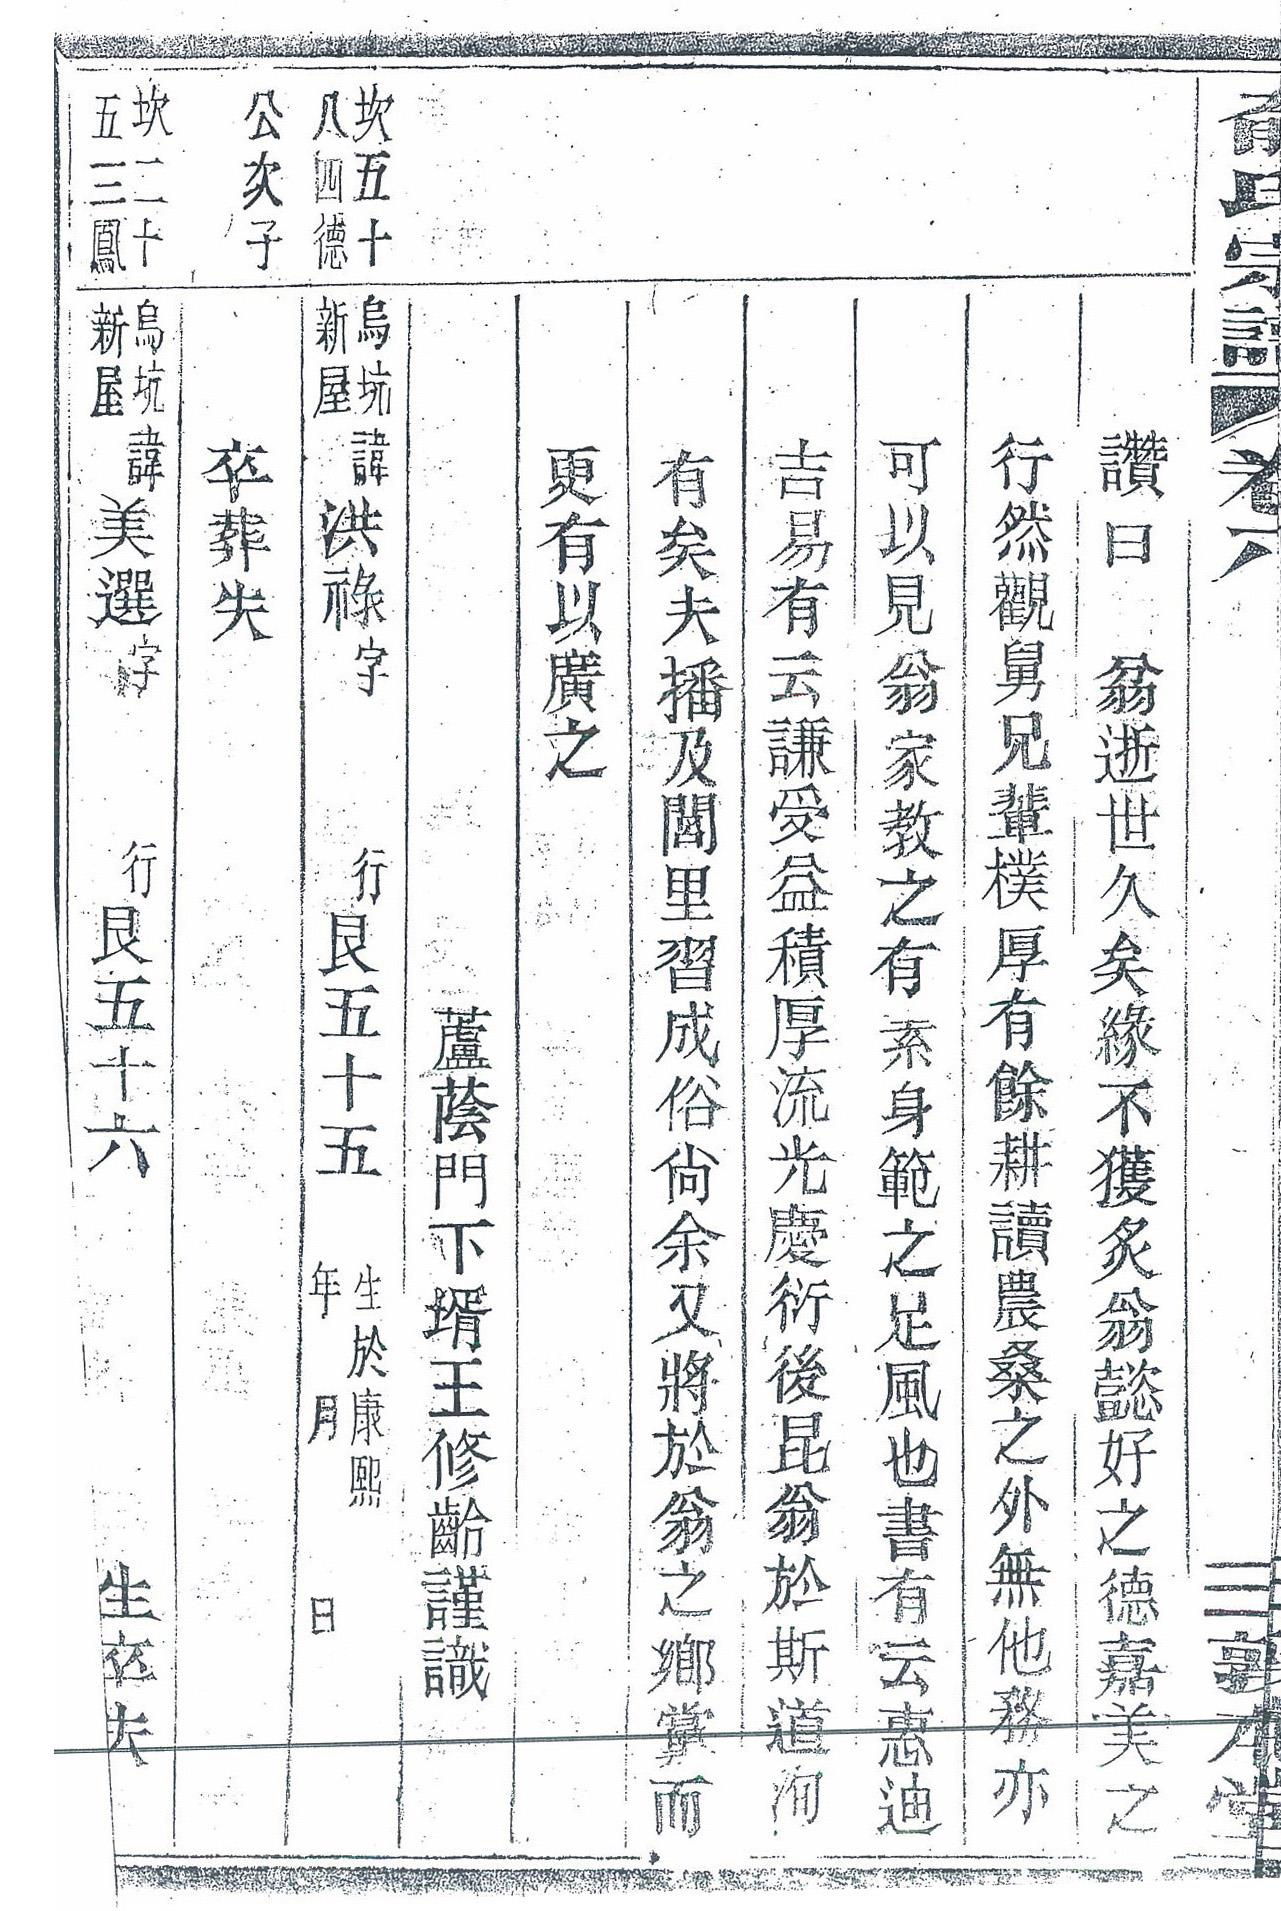 氏宗譜 卷六
讚曰 翁逝世久矣緣不獲炙翁懿好之德嘉美之
行然觀舅兄輩樸厚有餘耕讀農桑之外無他務亦
可以見翁家教之有素身範之足風也書有云惠迪
吉易有云謙受益積厚流光慶衍後昆翁於斯道洵
有矣夫播及閭里習成俗尚余又將於翁之鄉黨而
更有以廣之
蘆蔭門下壻王修齡謹識
坎五十
八四德
烏坑
新屋
諱洪祿字 行艮五十五 生於康熙
年 月 日
公次子
卒葬失
坎二十
五三鳳
烏坑
新屋
諱美選字 行艮五十六 生卒失